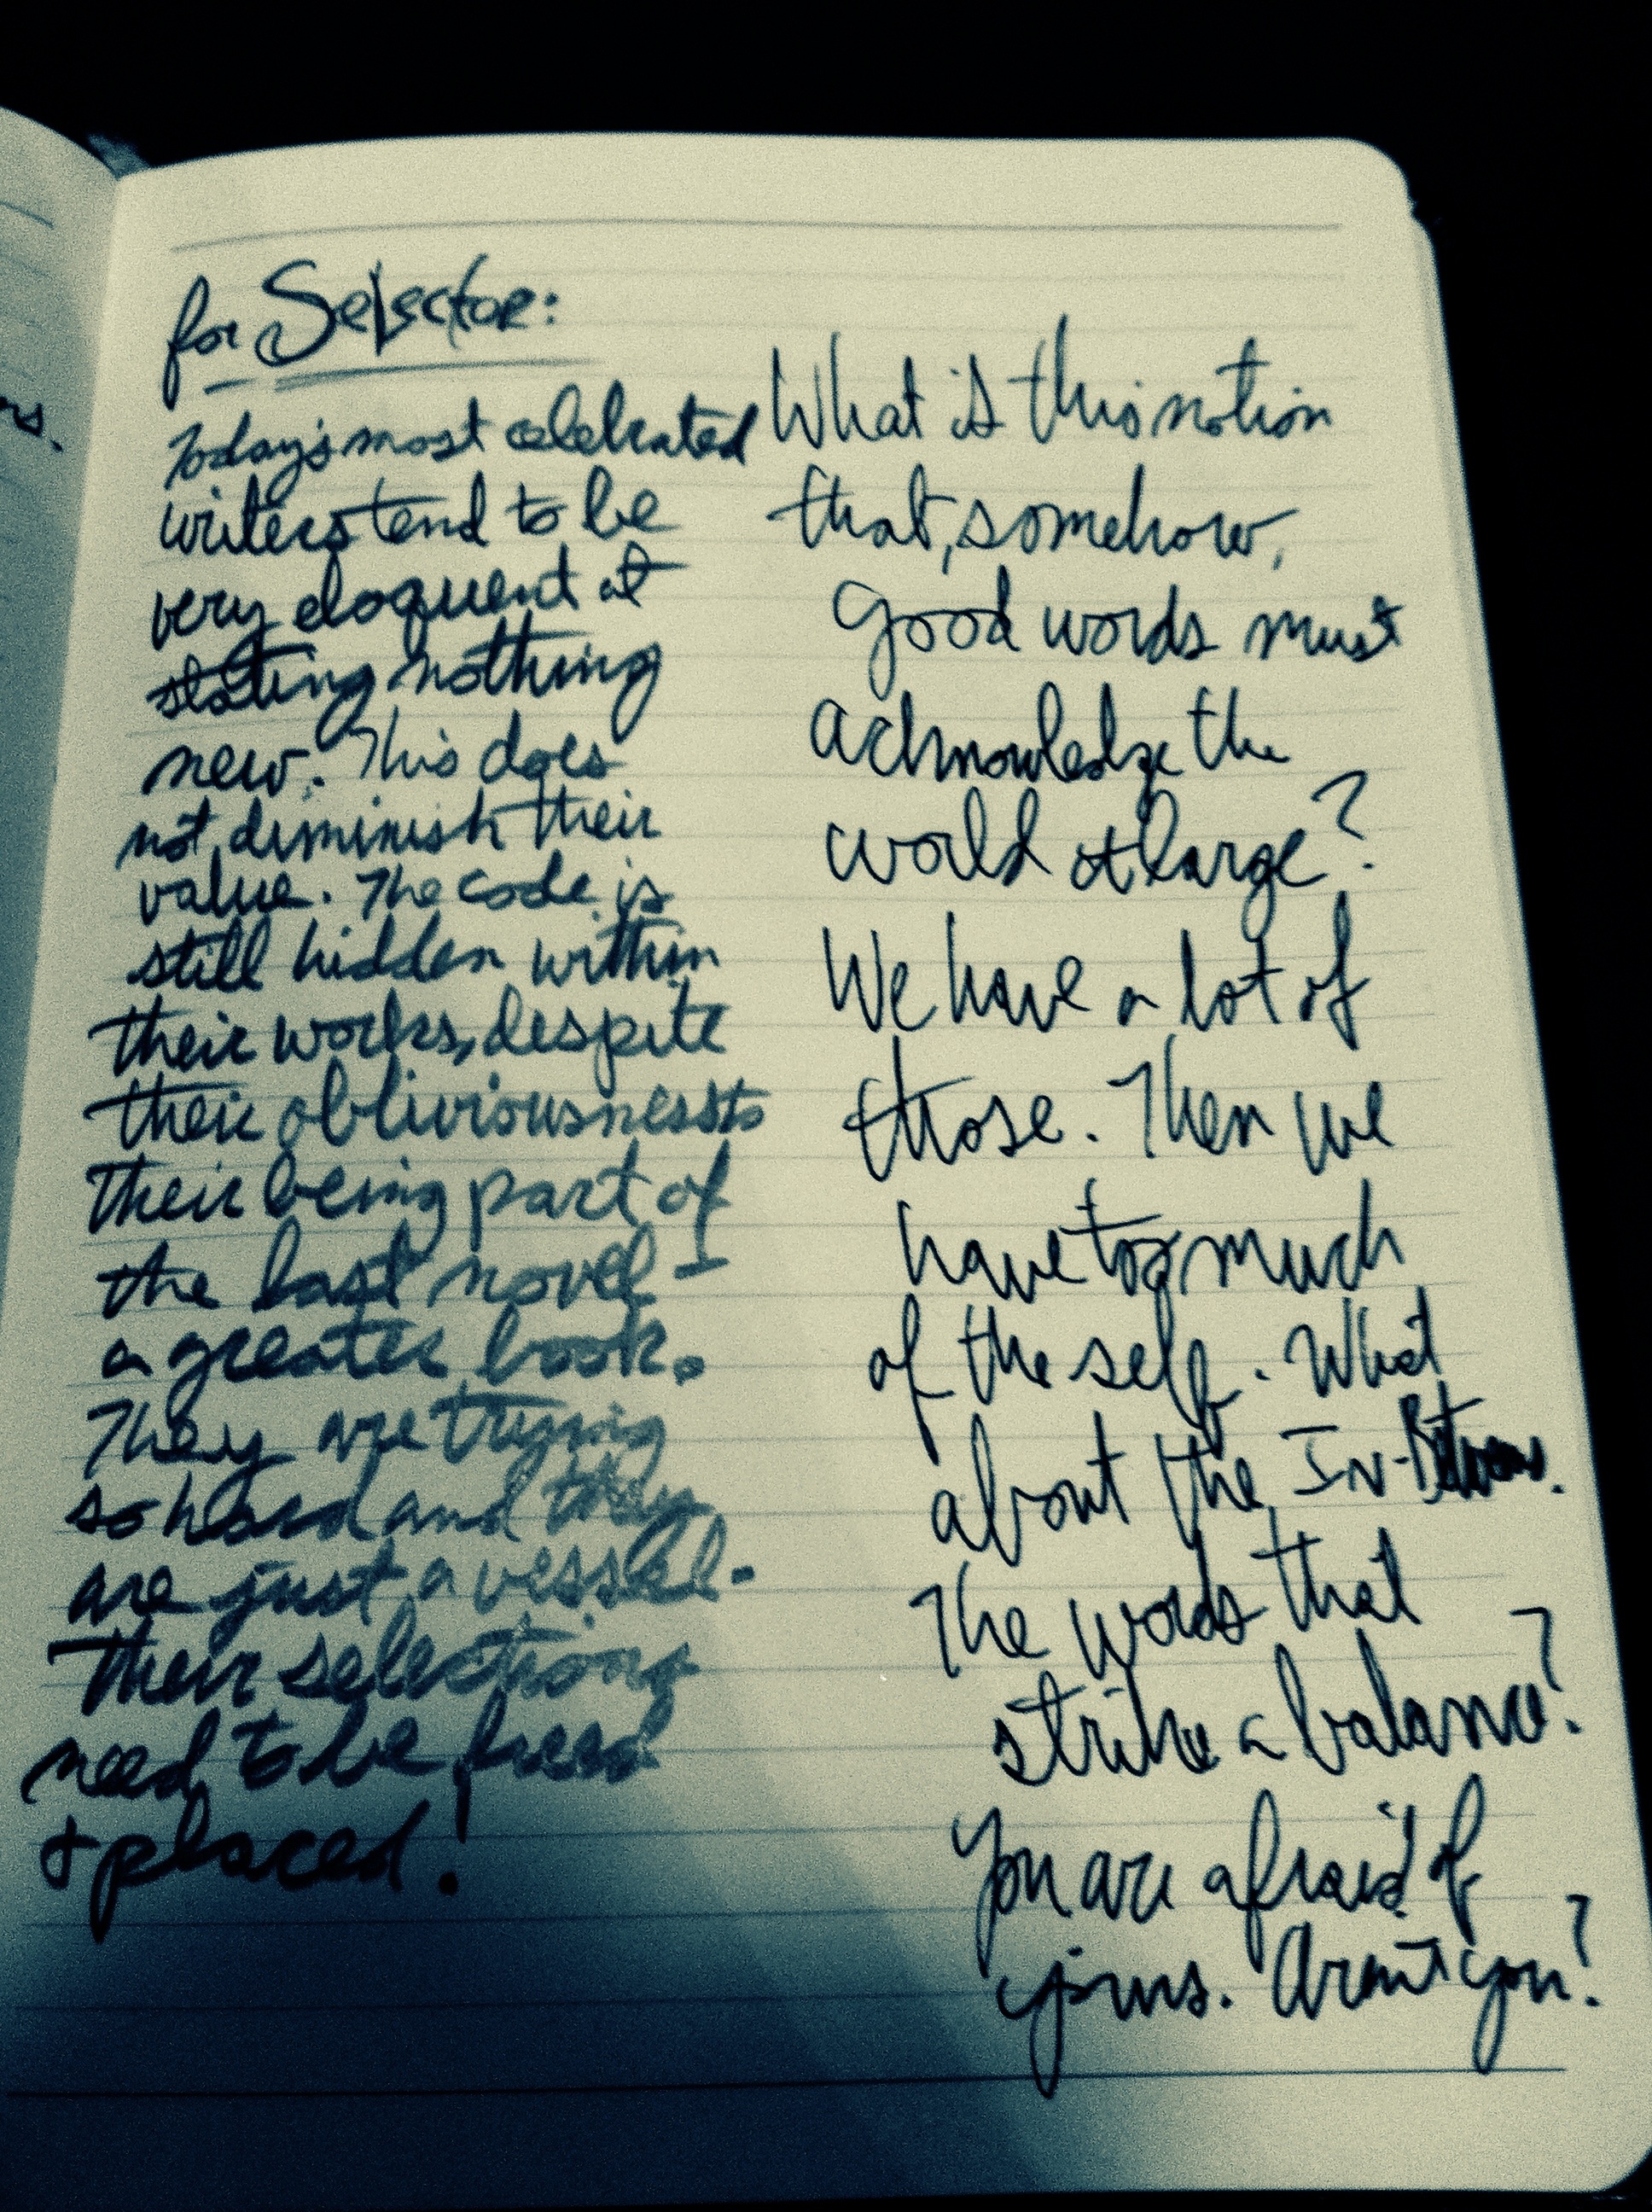 rs.
for Selector:
Today's most celebrated
writers tend to be
very eloquent at
stating nothing
new. This does
not diminish their
value. The code is
still hidden within
their works, despite
their obliviousness to
their being part of
the last novel –
a greater book.
They are trying
so hard and they
are just a vessel.
Their selections
need to be freed
+ placed!
What is this notion
that, somehow,
good words must
acknowledge the
world at large?
We have a lot of
those. Then we
have too much
of the self. What
about the In-Between.
The words that
strike a balance?
You are afraid of
yours. Aren't you?